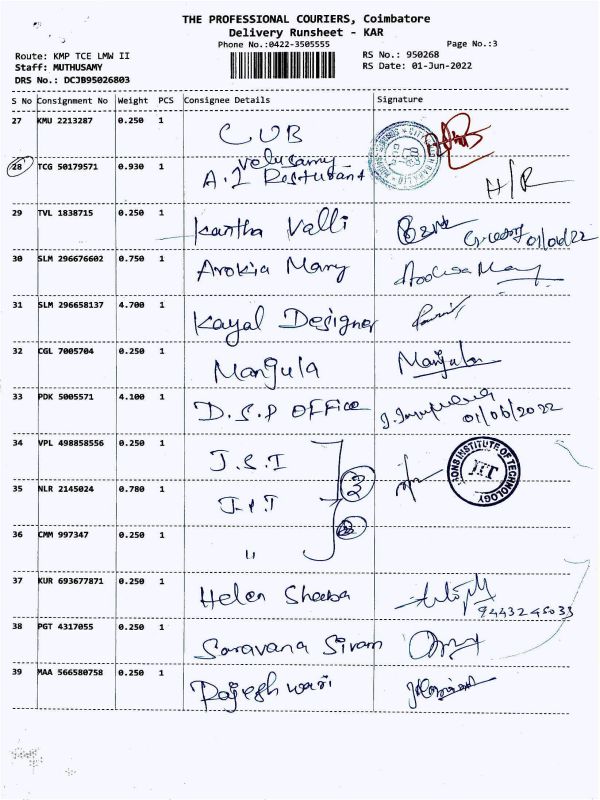 THE PROFESSIONAL COURIERS, Coimbatore
Delivery Runsheet - KAR
Phone No.:0422-3505555
Page No.:3
Route: KMP TCE LMW II
RS No.: 950268
Staff: MUTHUSAMY
RS Date: 01-Jun-2022
DRS No.: DCJB95026803
S No Consignment No Weight PCS Consignee Details Signature
27 KMU 2213287 0.250 1 CUB
28 TCG 50179571 0.930 1 Velusamy
A.I Resturant H/R
29 TVL 1838715 0.250 1 Kantha Valli 01/06/22
30 SLM 296676602 0.750 1 Arokia Mary
31 SLM 296658137 4.700 1 Kayal Designer
32 CGL 7005704 0.250 1 Mangula Manjula
33 PDK 5005571 4.100 1 D.S.P OFFice
01/06/2022
34 VPL 498858556 0.250 1 J.S.I
INSTITUTE OF TECHNOLOGY
35 NLR 2145024 0.780 1 3
36 CMM 997347 0.250 1 "
37 KUR 693677871 0.250 1 Helen Sheeba
9443246033
38 PGT 4317055 0.250 1 Saravana Sivam
39 MAA 566580758 0.250 1 Rajeshwari